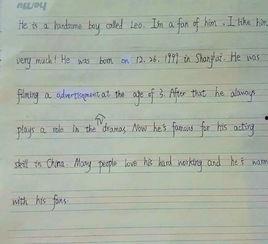 He is a handsome boy called Leo. I'm a fan of him. I like him
very much! He was born on 12. 26. 1999 in Shanghai. He was
filming a advertisement at the age of 3. After that he always
plays a role in the TV dramas. Now he's famous for his acting
skill in China. Many people love his hard working and he's warm
with his fans.